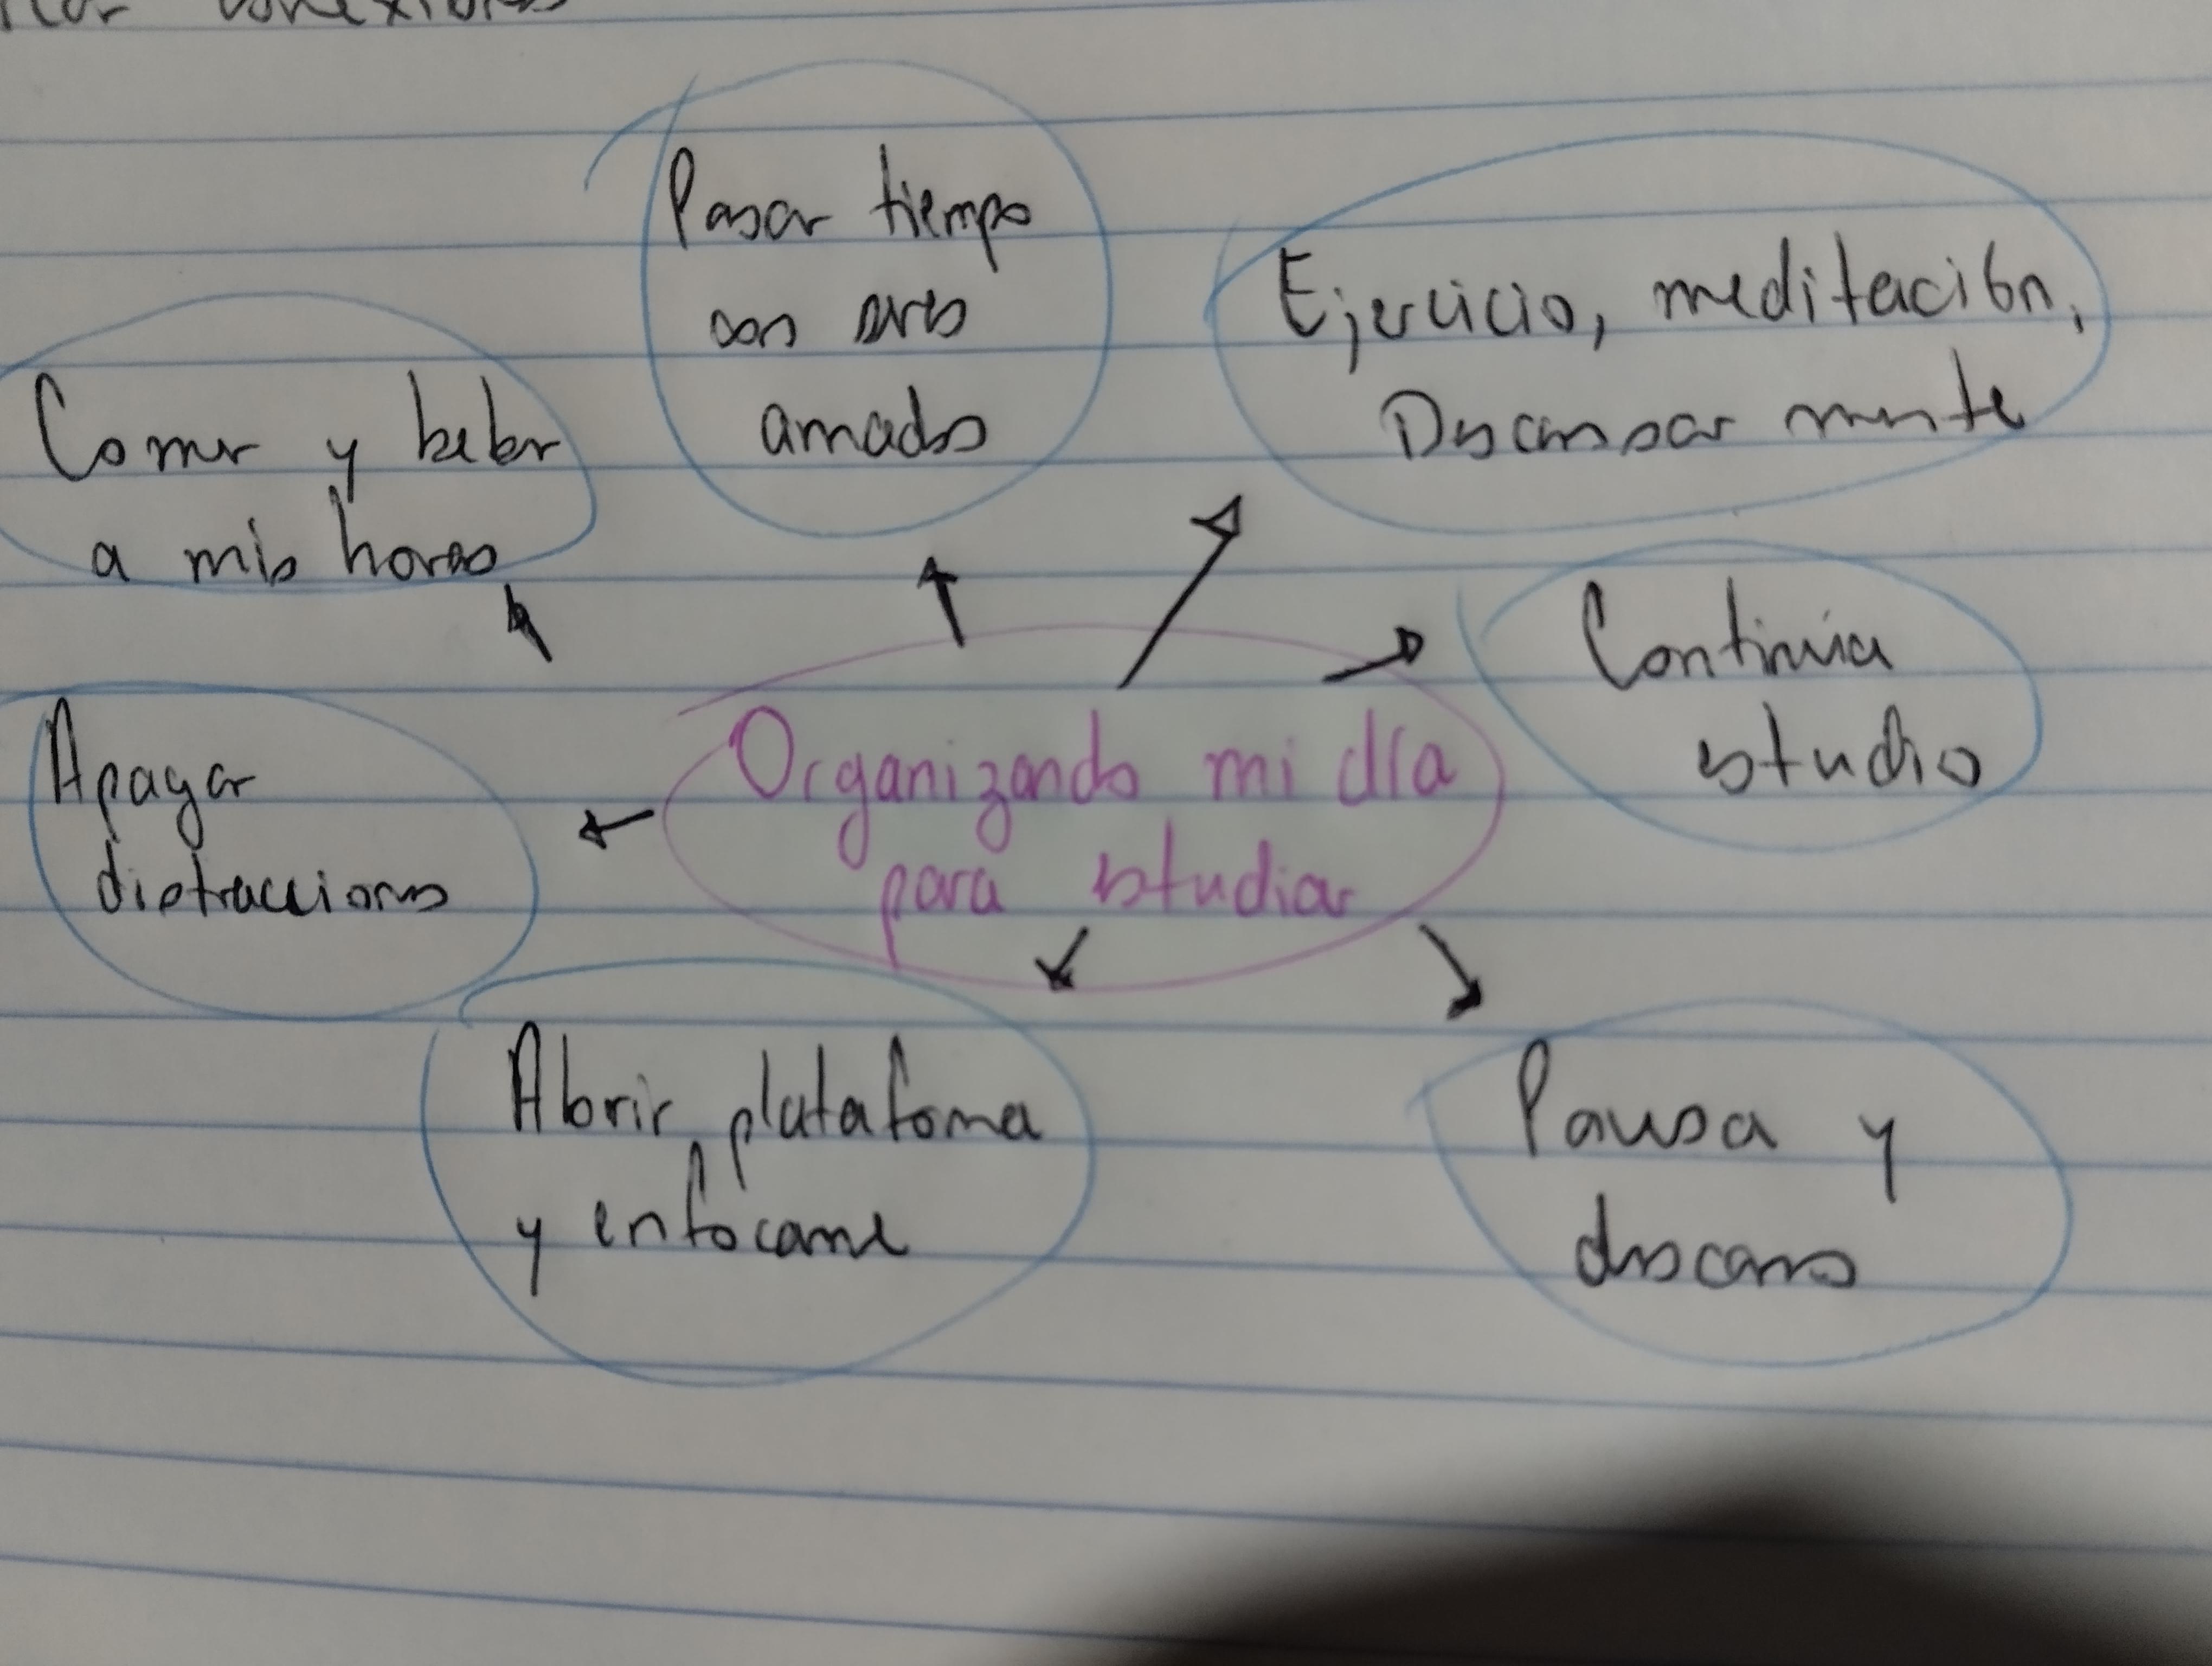 conexiones
Pasar tiempo
con seres
amados
Ejercicio, meditación,
Descansar mente
Comer y beber
a mis horas
Continúa
estudio
Organizando mi día
para estudiar
Apagar
distracciones
Abrir plataforma
y enfocarme
Pausa y
descanso